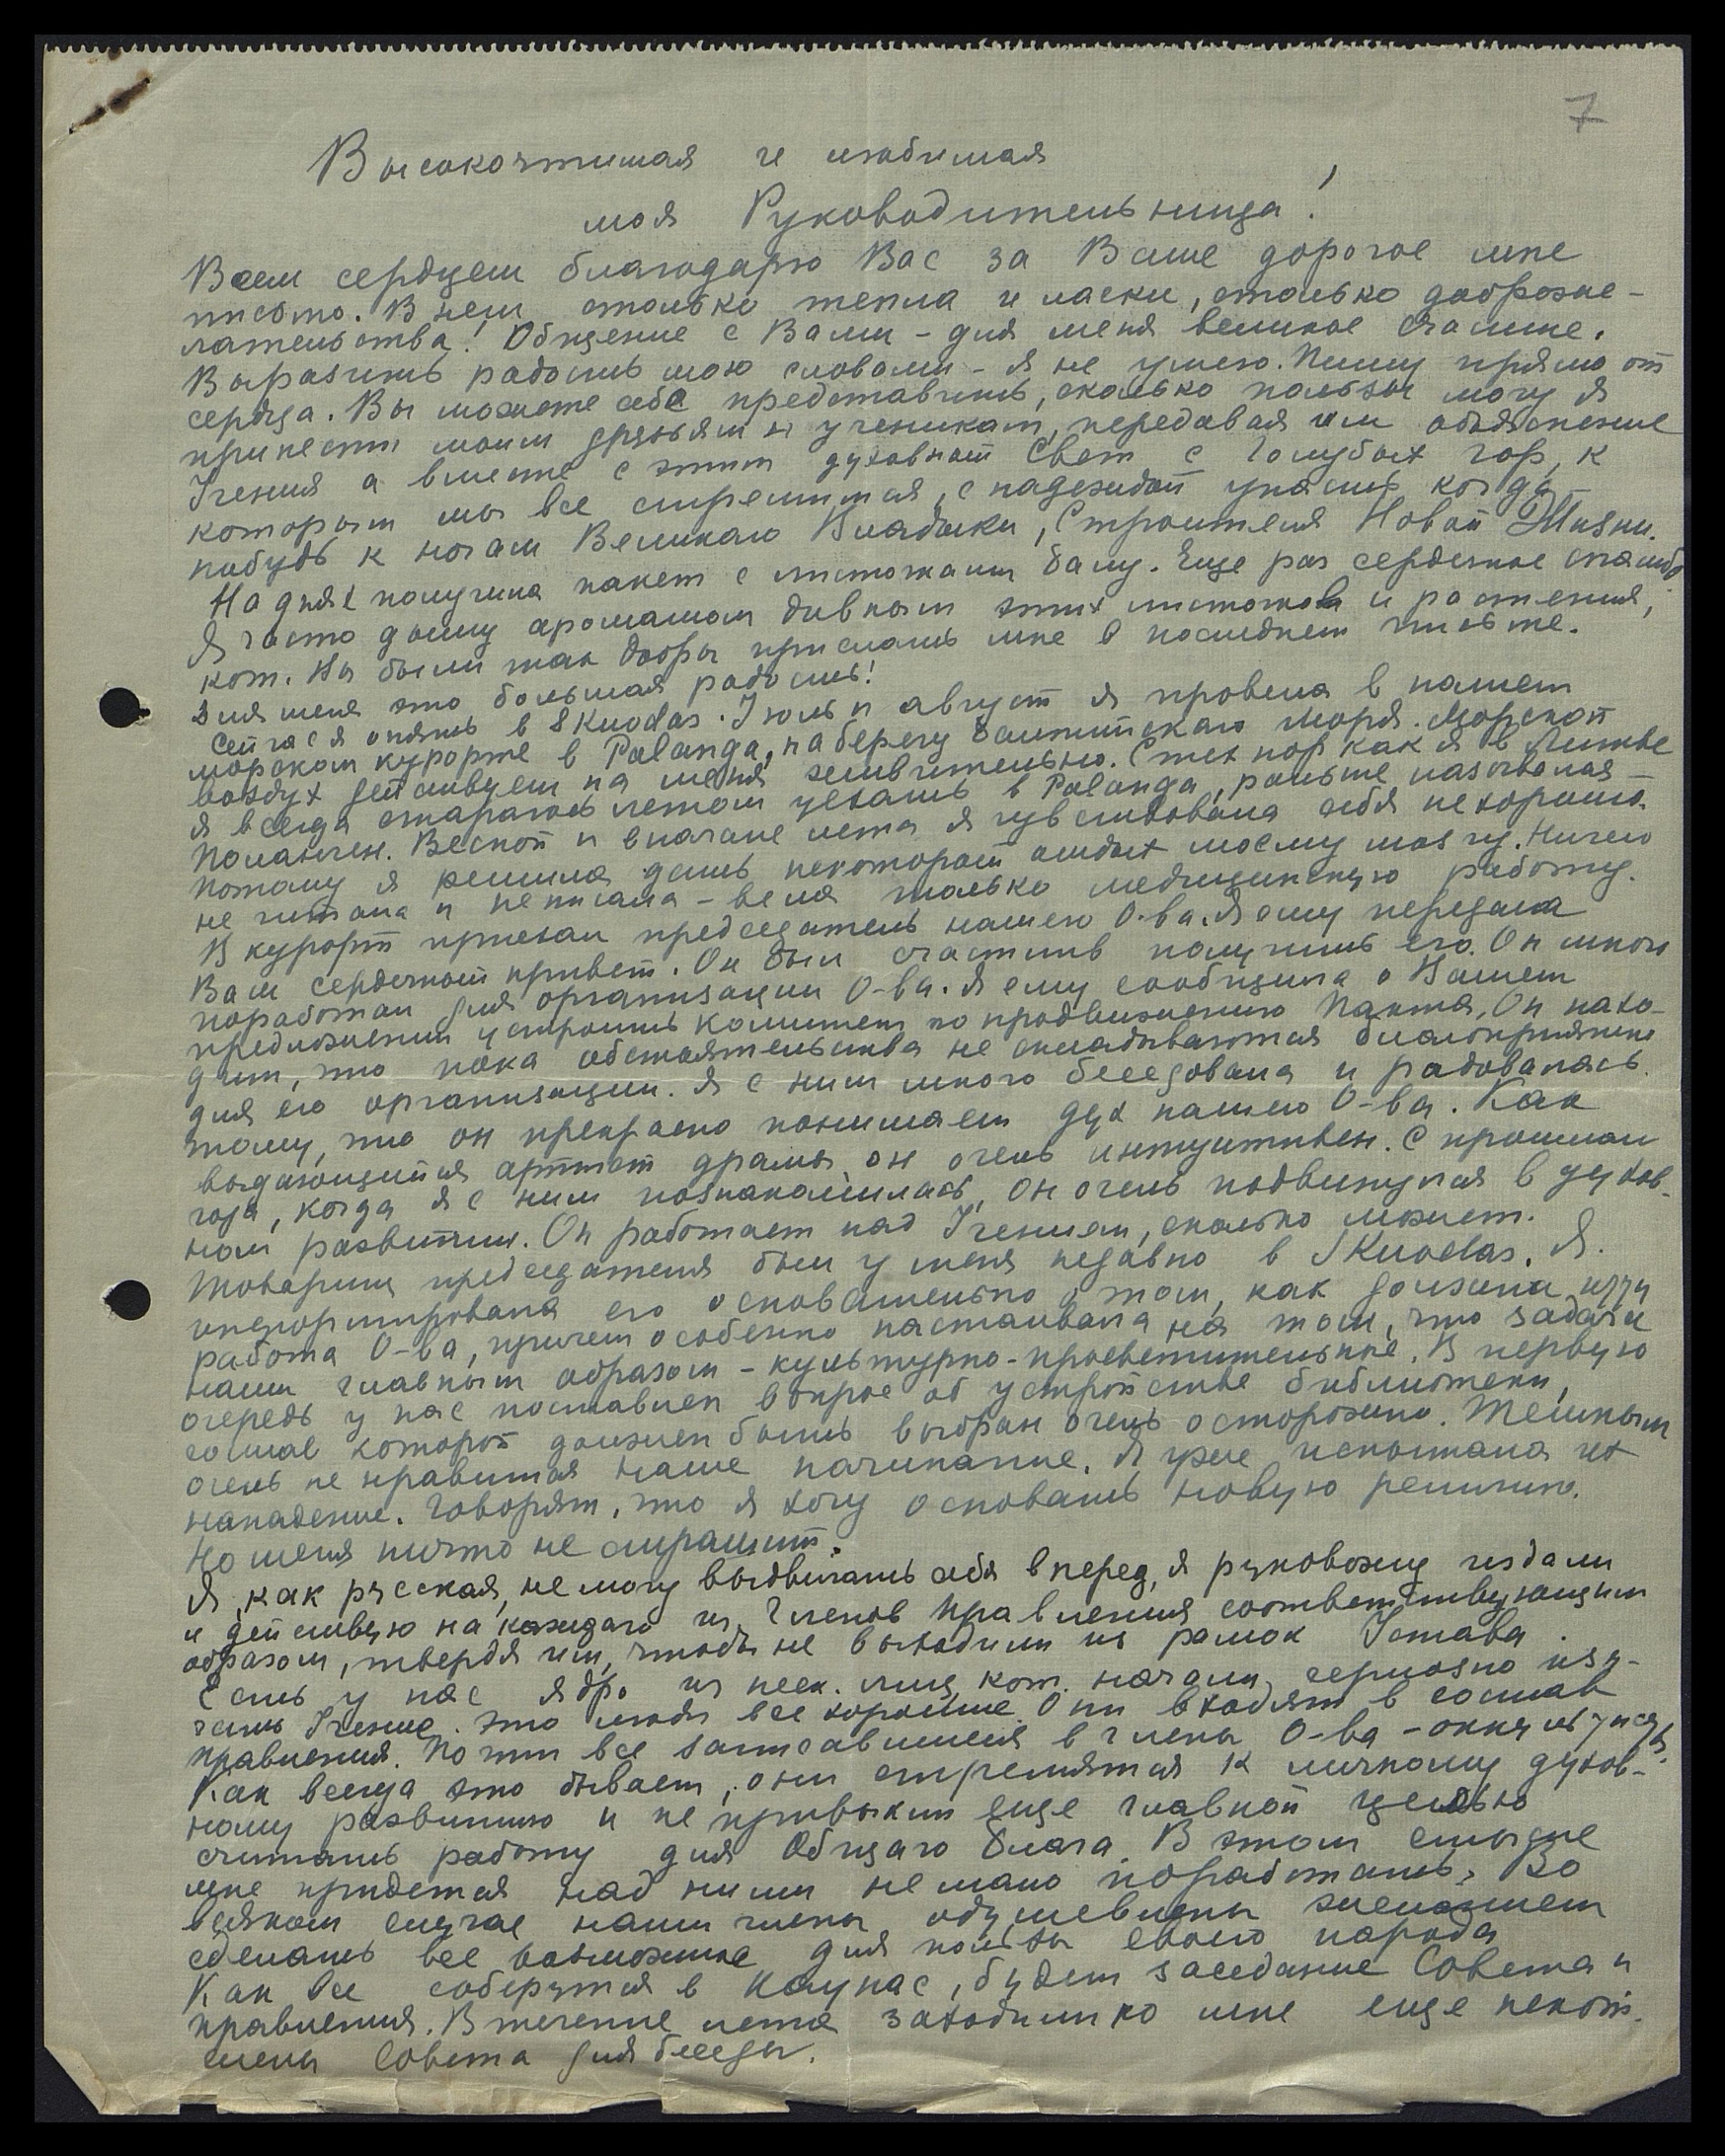 7
Высокочтимая и любимая
моя Руководительница!
Всем сердцем благодарю Вас за Ваше дорогое мне
письмо. В нем столько тепла и ласки, столько доброже-
лательства! Общение с Вами - для меня великое счастие.
Выразить радость мою словами - я не умею. Пишу прямо от
сердца. Вы можете себе представить, сколько пользы могу я
принести моим друзьям и ученикам, передавая им объяснение
Учения а вместе с этим духовный Свет с Голубых гор, к
которым мы все стремимся, с надеждой упасть когда
нибудь к ногам Великаго Владыки, Строителя Новой Жизни.
На днях получила пакет с листочками балу. Еще раз сердечное спасибо
Я часто дышу ароматом дивным этих листочков и растения,
кот. Вы были так добры прислать мне в последнем письме.
Для меня это большая радость!
Сейчас я опять в Skuodas. Июль и август я провела в нашем
морском курорте в Palanga, на берегу Балтийскаго моря. Морской
воздух действует на меня живительно. С тех пор как я в Литве
я всегда стараюсь летом уехать в Palanga, раньше называлась -
Поланген. Весной и вначале лета я чувствовала себя нехорошо.
Потому я решила дать некоторый отдых моему мозгу. Ничего
не читала и не писала - вела только медицинскую работу.
В курорт приехал председатель нашего О-ва. Я ему передала
Ваш сердечный привет. Он был счастлив получить его. Он много
поработал для организации О-ва. Я ему сообщила о Вашем
предложении устроить Комитет по продвижению Пакта. Он нахо-
дит, что пока обстоятельства не складываются благоприятно
для его организации. Я с ним много беседовала и радовалась
тому, что он прекрасно понимает дух нашего О-ва. Как
выдающийся артист драмы, он очень интуитивен. С прошлаго
года, когда я с ним познакомилась, он очень подвинулся в духов-
ном развитии. Он работает над Учением, сколько может.
Товарищ председателя был у меня недавно в Skuodas. Я
информировала его основательно о том, как должна идти
работа О-ва, причем особенно настаивала на том, что задачи
наши главным образом - культурно-просветительные. В первую
очередь у нас поставлен вопрос об устройстве библиотеки,
состав которой должен быть выбран очень осторожно. Темным
очень не нравится наше начинание. Я уже испытала их
нападение. Говорят, что я хочу основать новую религию.
Но меня ничто не страшит.
Я, как русская, не могу выдвигать себя вперед, я руковожу издали
и действую на каждаго из членов Правления соответствующим
образом, твердя им, чтобы не выходили из рамок Устава.
Есть у нас ядро из неск. лиц, кот. начали серьозно изу-
чать Учение. Это люди все хорошие. Они входят в состав
правления. Почти все записавшиеся в члены О-ва - оккультисты.
Как всегда это бывает, они стремятся к личному духов-
ному развитию и не привыкли еще главной целью
считать работу для Общаго Блага. В этом смысле
мне придется над ними не мало поработать. Во
всяком случае наши члены одушевлены желанием
сделать все возможное для пользы своего народа
Как все соберутся в Каунас, будет заседание Совета и
правления. В течение лета заходили ко мне еще некот.
члены Совета для беседы.